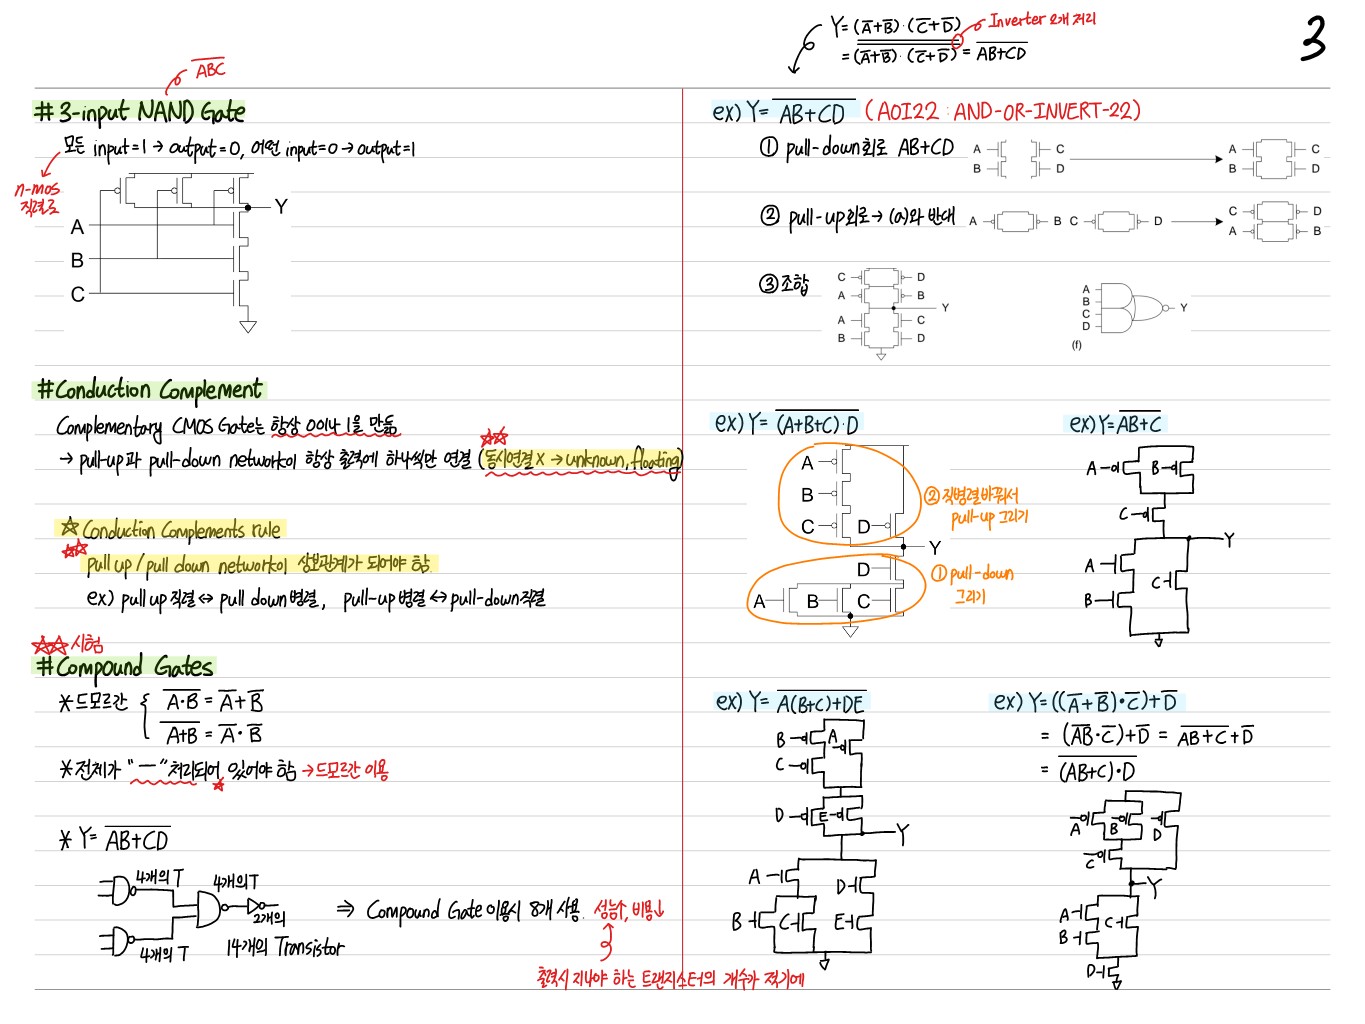 3
Y= (A̅+B̅)·(C̅+D̅) Inverter 2개 처리
= (A̅+B̅)·(C̅+D̅) = \overline{AB+CD}
\overline{ABC}
# 3-input NAND Gate
모든 input=1 → output=0, 어떤 input=0 → output=1
n-mos
직렬로
Y
A
B
C
# Conduction Complement
Complementary CMOS Gate는 항상 0이나 1을 만듦
→ pull-up과 pull-down network이 항상 출력에 하나씩만 연결 (동시연결 X → unknown, floating)
☆ Conduction Complements rule
pull up / pull down network이 상보관계가 되어야 함
ex) pull up 직렬 ↔ pull down 병렬, pull-up 병렬 ↔ pull-down 직렬
☆☆ 시험
# Compound Gates
* 드모르간 { \overline{A·B} = A̅+B̅
\overline{A+B} = A̅·B̅
* 전체가 "—" 처리되어 있어야 함 → 드모르간 이용
* Y= \overline{AB+CD}
4개의 T
4개의 T
2개의
4개의 T
14개의 Transistor
⇒ Compound Gate 이용시 8개 사용. 성능↑, 비용↓
출력시 지나야 하는 트랜지스터의 개수가 적기에
ex) Y= \overline{AB+CD} (AOI22 : AND-OR-INVERT-22)
① pull-down회로 AB+CD
A C
B D
A C
B D
② pull-up회로 → (a)와 반대
A B C D
C D
A B
③ 조합
C D
A B
Y
A C
B D
A
B
C
D
Y
(f)
ex) Y= \overline{(A+B+C)·D}
A
B
C D
Y
D
A B C
② 직병렬 바꿔서
pull-up 그리기
① pull-down
그리기
ex) Y= \overline{AB+C}
A B
C
Y
A
C
B
ex) Y= \overline{A(B+C)+DE}
B A
C
D E
Y
A D
B C E
ex) Y= ((A̅+B̅)·C̅)+D̅
= (\overline{AB}·C̅)+D̅ = \overline{AB+C}+D̅
= \overline{(AB+C)·D}
A B D
C
Y
A
C
B
D